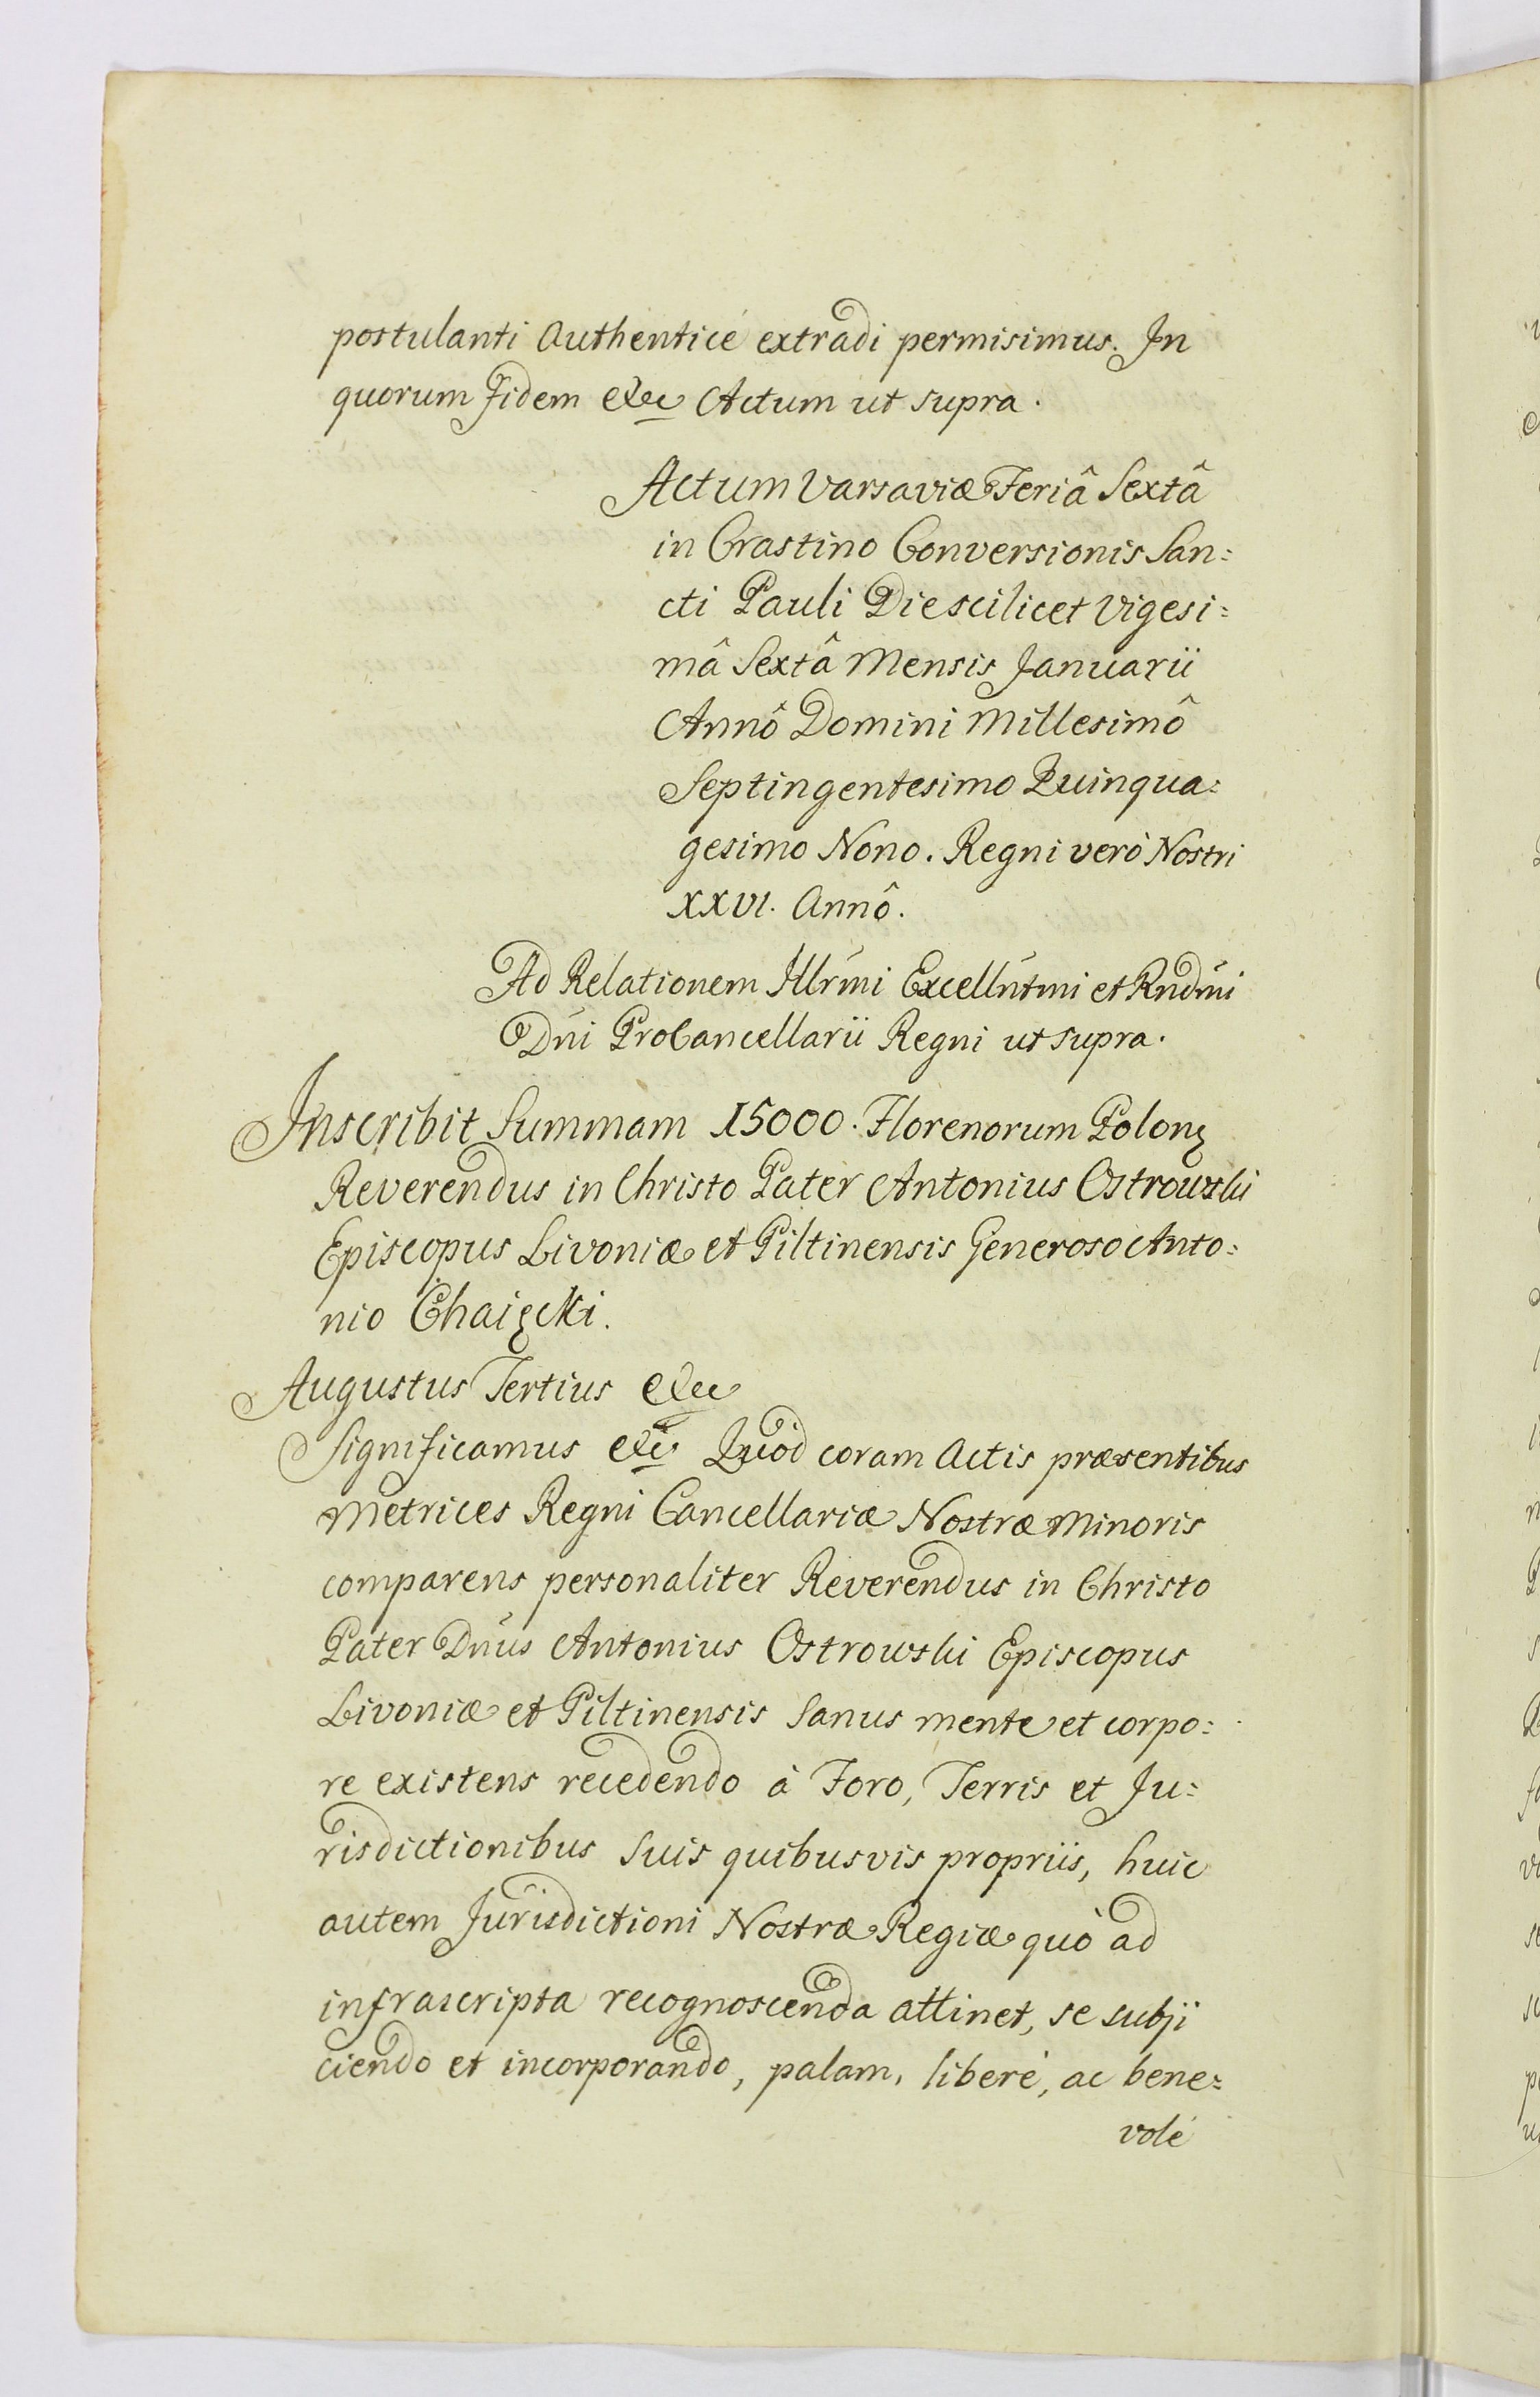 postulanti Authenticé extradi permisimus. In
quorum Fidem etc Actum ut supra.
Actum Varsaviæ Feriâ Sextâ
in Crastino Conversionis San:
cti Pauli Die scilicet Vigesi:
mâ Sextâ Mensis Januarii
Annô Domini Millesimô
Septingentesimo Quinqua:
gesimo Nono. Regni verò Nostri
XXVI. Annô.
Ad Relationem Illrmi Excellntmi et Rndmi
Dni ProCancellarii Regni ut supra.
Inscribit Summam 15000. Florenorum Polon
Reverendus in Christo Pater Antonius Ostrowski
Episcopus Livoniæ et Piltinensis Generoso Anto:
nio
Augustus Tertius etc
Significamus etc Quòd coram Actis præsentibus
Metrices Regni Cancellariæ Nostræ Minoris
comparens personaliter Reverendus in Christo
Pater Dnus Antonius Ostrowski Episcopus
Livoniæ et Piltinensis Sanus mente et corpo:
re existens recedendo à Foro, Terris et Ju:
risdictionibus Suis quibusvis propriis, huic
autem Jurisdictioni Nostræ Regiæ quò ad
infrascripta recognoscenda attinet, se subji
ciendo et incorporando, palam, liberé, ac bene:
volé